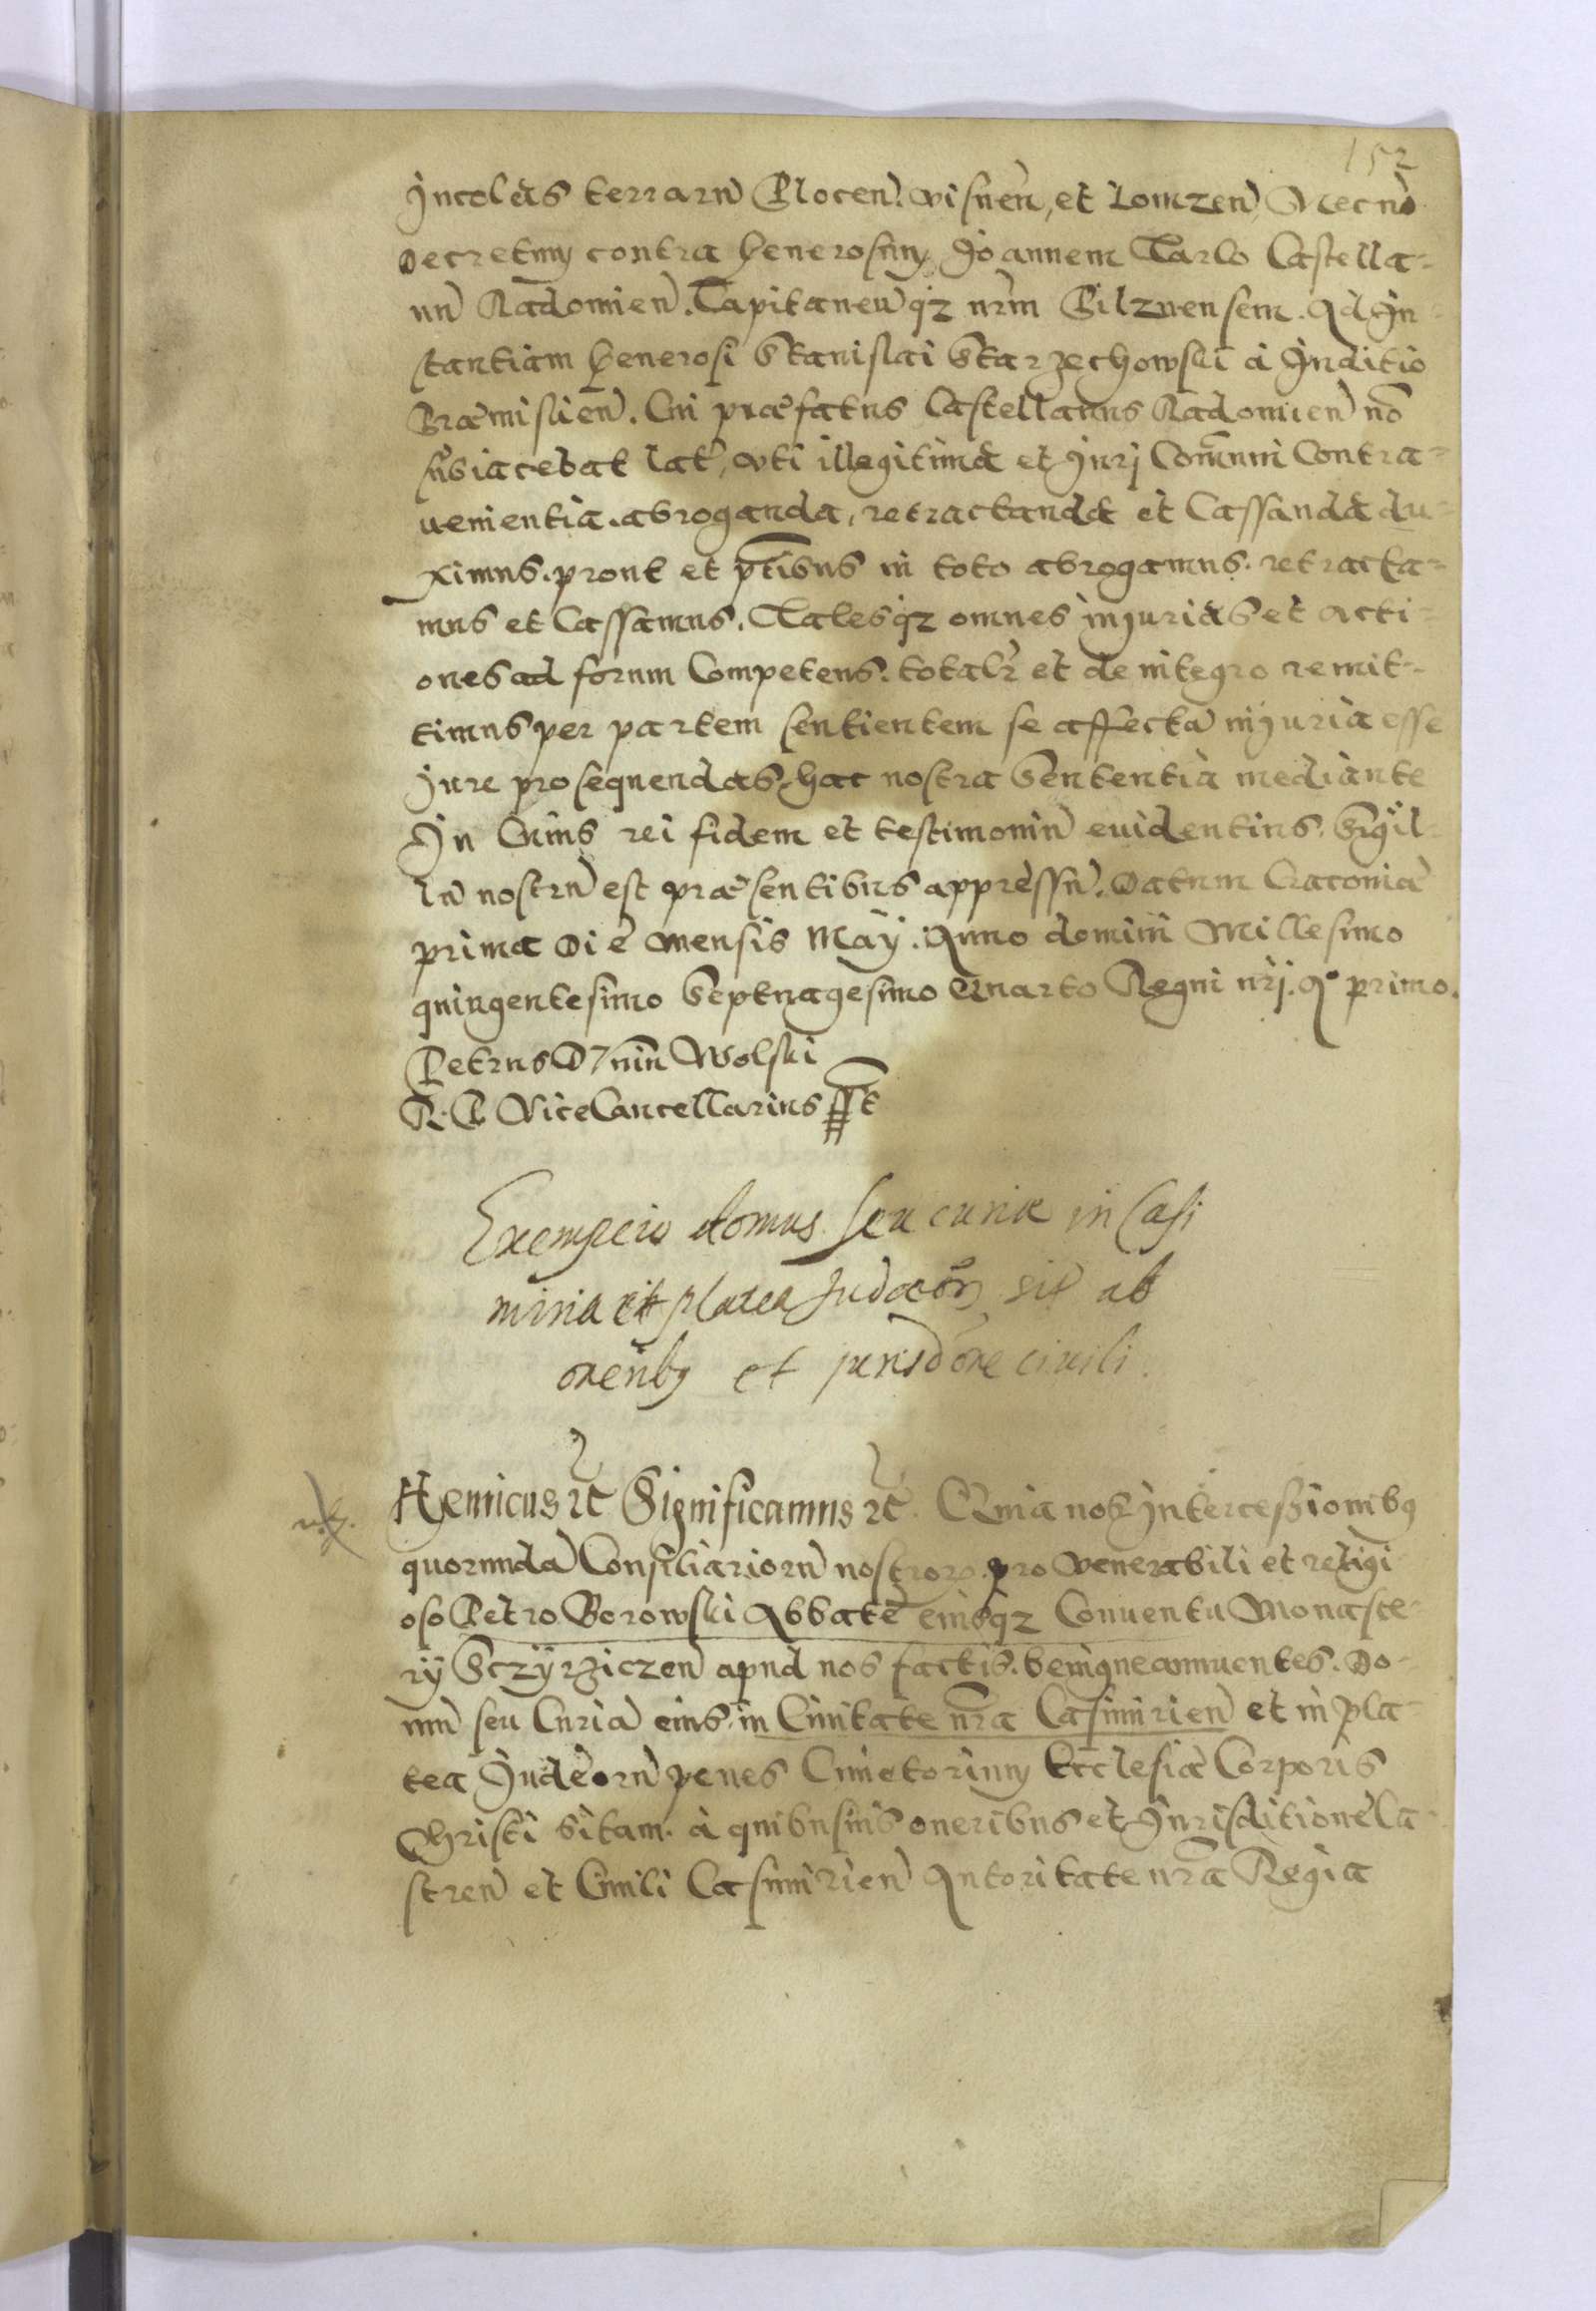 152
Incolas terrarū Plocen̄. Visnen̄, et Lomzen̄, Nec nō
Decretum contra Generosum Joannem Tarlo Castella-
nū Radomien̄. Capitaneū qz nrm̄ Pilznensem. Ad In-
stantiam Generosi Stanislai Starzechowski a Iuditio
Præmislien̄. Cui præfatus Castellanus Radomien̄ nō
subiacebat lat', uti illegitima et Iurj Com̄uni Contra-
uenientia. abroganda, retractanda et Cassanda du-
ximus. prout et pn̄tibus in toto abrogamus. retracta-
mus et Cassamus. Talesqz omnes injurias et acti-
ones ad forum Competens. totalr̄ et de integro remit-
timus per partem sentientem se affectā injuria esse
Jure prosequendas. hac nostra Sententia mediante
In Cuius rei fidem et testimoniū euidentius. Sigil-
lū nostrū est præsentibus appressū. Datum Cracouiæ
prima Die mensis Maÿ. Anno domini Millesimo
quingentesimo Septuagesimo Quarto Regni nrj. Aº primo.
Petrus Dunin Wolski
R. P. ViceCancellarius sst
Exemptio domus seu curiæ in Casi
miria et platea Judæor sit ab
onerib9 et jurisdone ciuili.
Henricus etc Significamus etc. Quia nos Intercessionib9
quorundā Consiliariorū nostror. pro Venerabili et religi
oso Petro Borowski Abbate eiusqz Conuentu Monaste-
rÿ Sczÿrziczen̄ apud nos factis. benigne annuentes. Do-
mū seu Curiā eius. in Ciuitate nr̄a Casimirien̄ et in pla-
tea Iudeorū penes Cimetorium Ecclesiæ Corporis
Christi sitam. à quibusuis oneribus et Iurisditione Ca-
stren̄ et Ciuili Casimirien̄ Autoritate nr̄a Regia